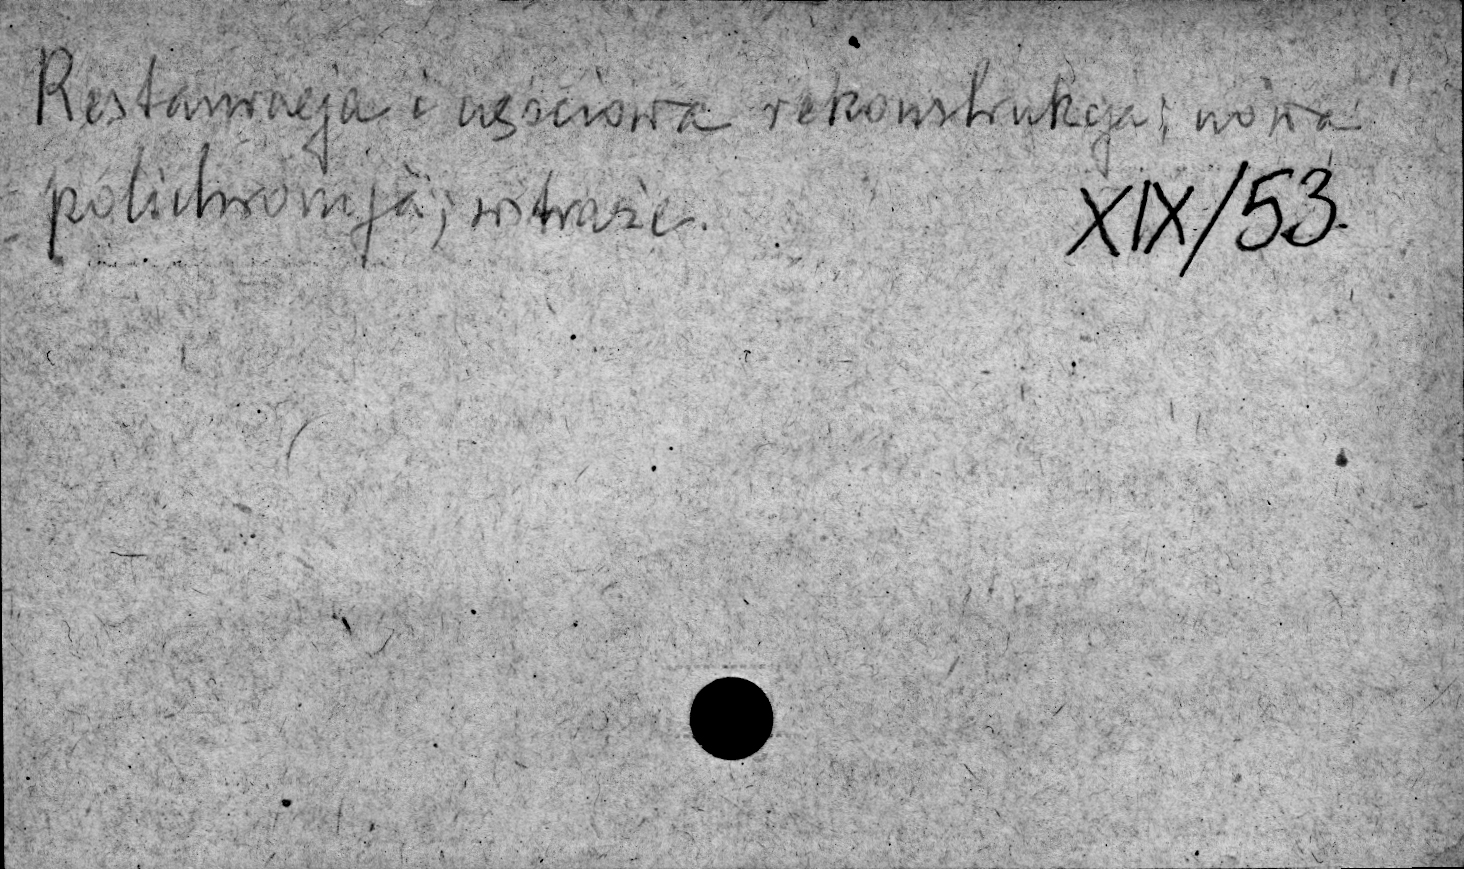 Restauracja i częściowa rekonstrukcja; nowa
polichromja; witraże.
XIX/53.